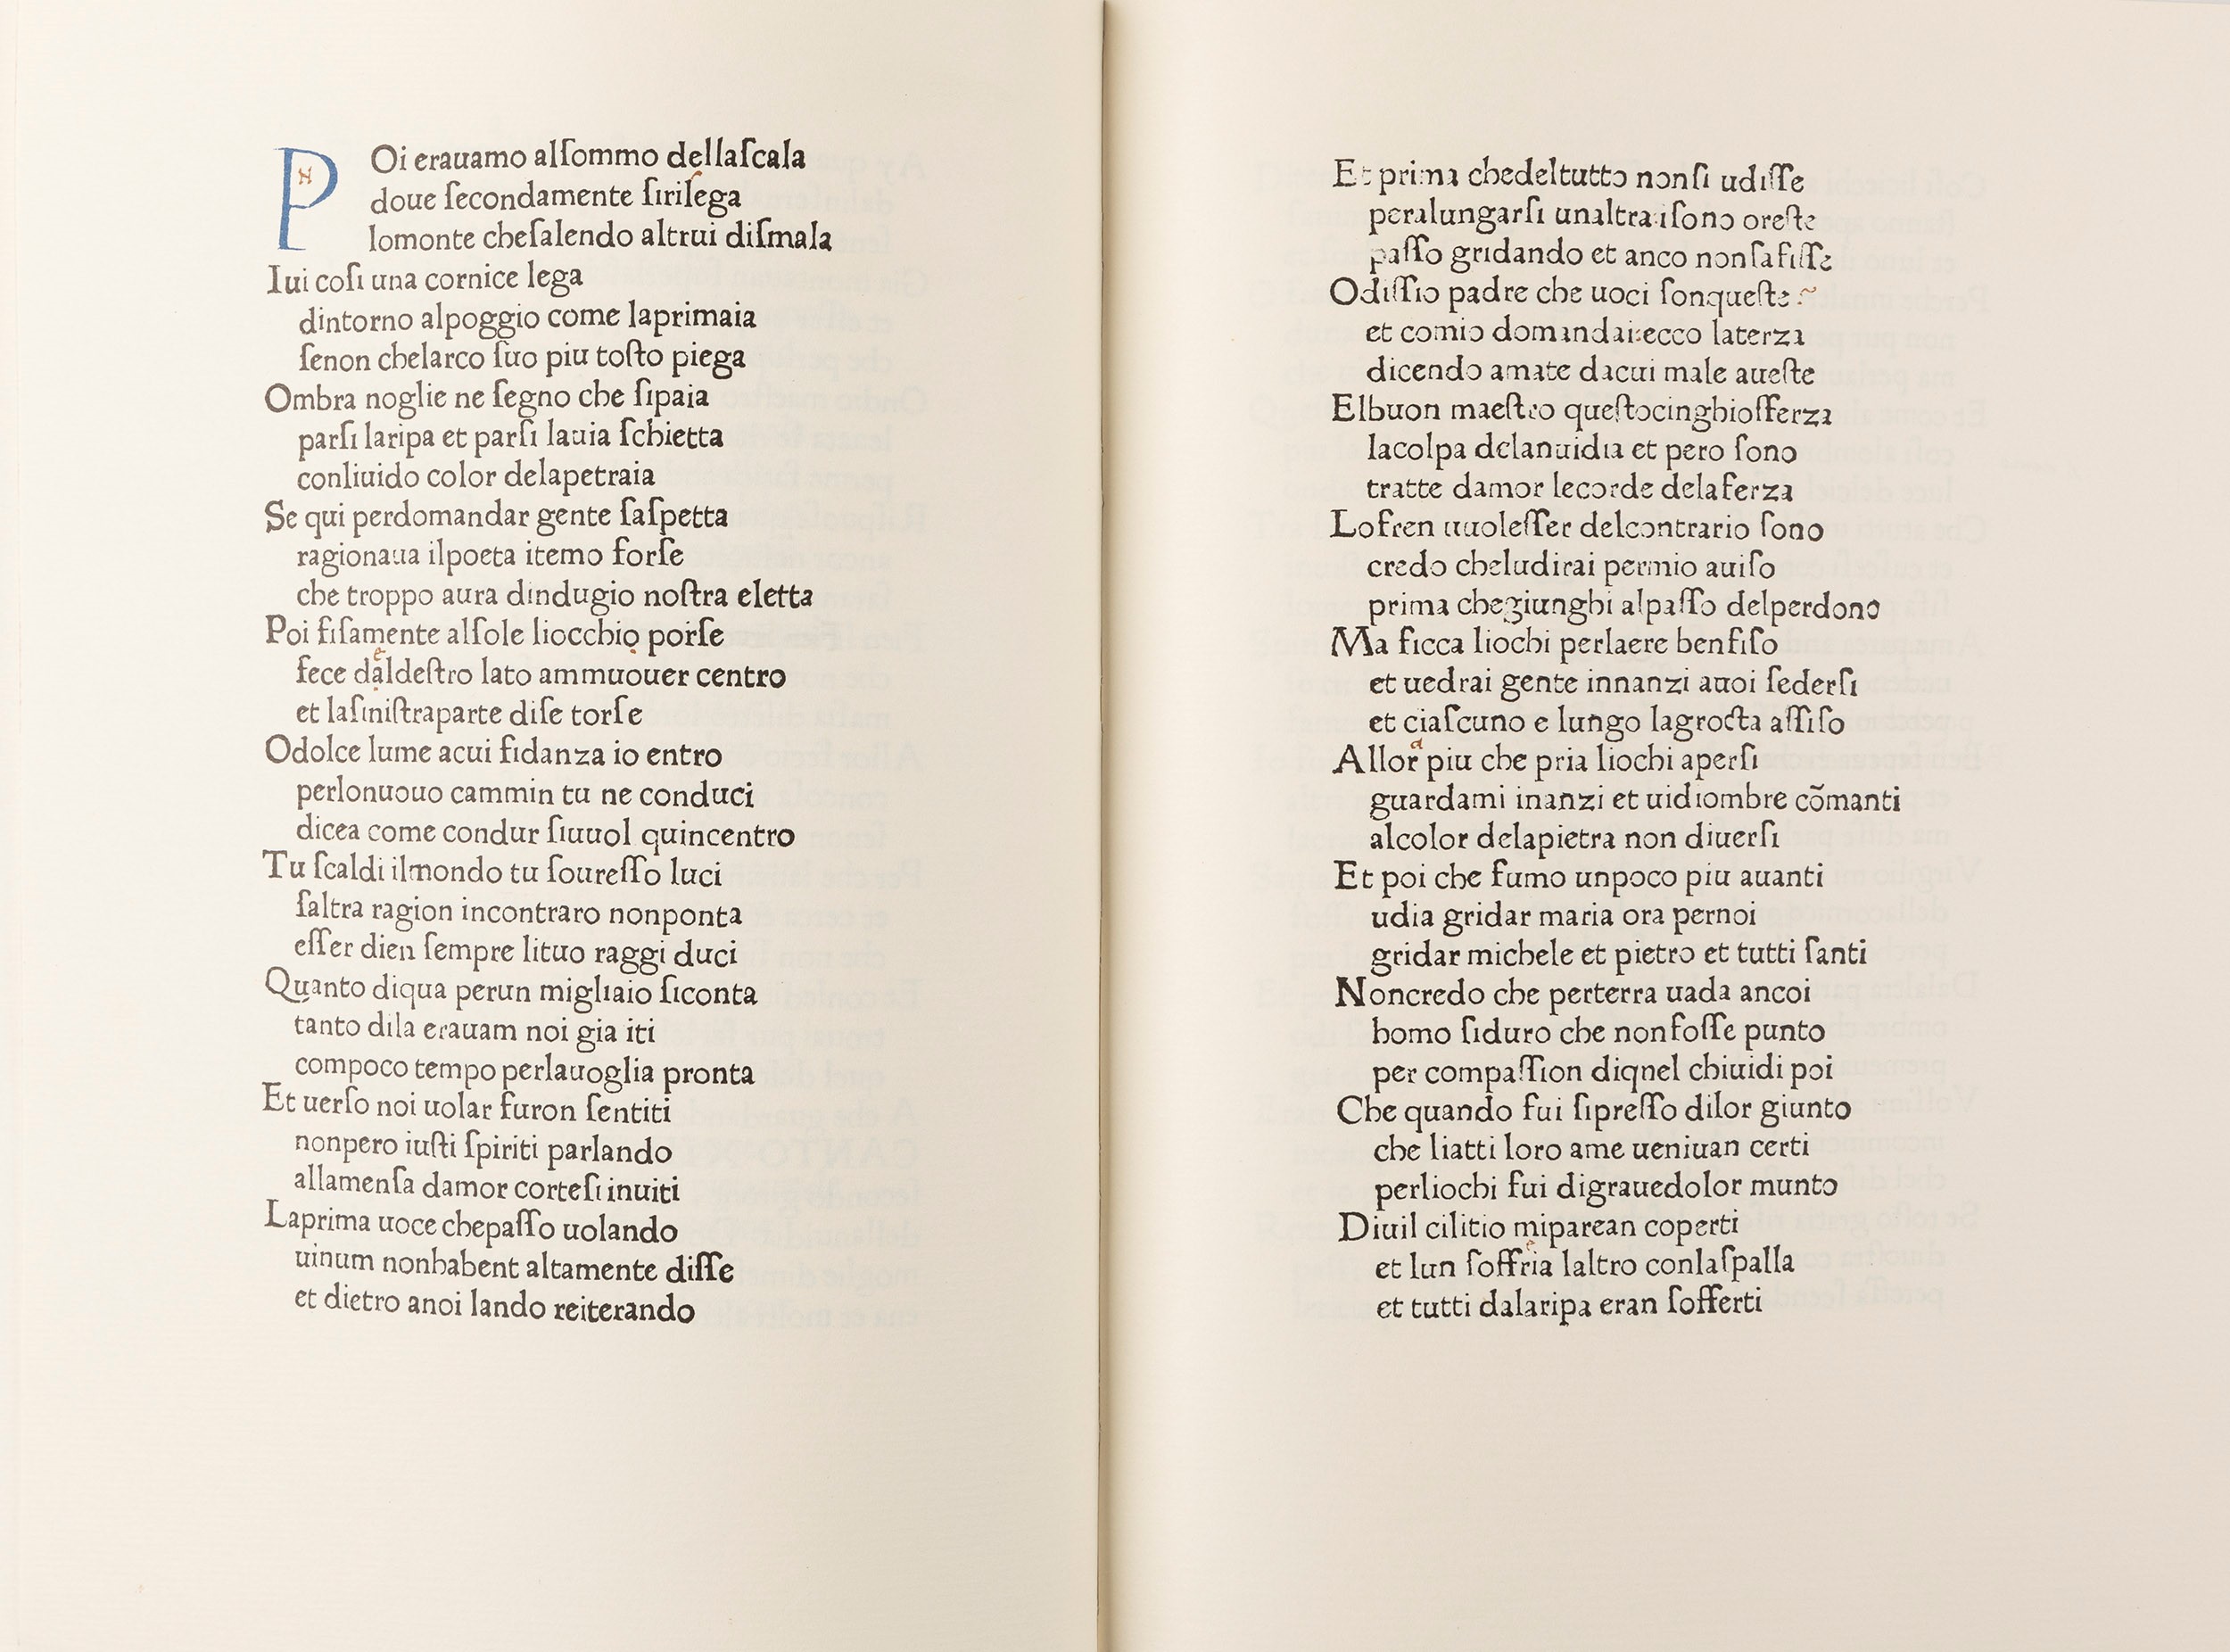 POi erauamo alſommo dellaſcala
doue ſecondamente ſiriſega
lomonte cheſalendo altrui diſmala
Iui coſi una cornice lega
dintorno alpoggio come laprimaia
ſenon chelarco ſuo piu toſto piega
Ombra noglie ne ſegno che ſipaia
parſi laripa et parſi lauia ſchietta
conliuido color delapetraia
Se qui perdomandar gente ſaſpetta
ragionaua ilpoeta itemo forſe
che troppo aura dindugio noſtra eletta
Poi fiſamente alſole liocchio porſe
fece daldeſtro lato ammuouer centro
et laſiniſtraparte diſe torſe
Odolce lume acui fidanza io entro
perlonuouo cammin tu ne conduci
dicea come condur ſiuuol quincentro
Tu ſcaldi ilmondo tu ſoureſſo luci
ſaltra ragion incontraro nonponta
eſſer dien ſempre lituo raggi duci
Quanto diqua perun migliaio ſiconta
tanto dila erauam noi gia iti
compoco tempo perlauoglia pronta
Et uerſo noi uolar furon ſentiti
nonpero iuſti ſpiriti parlando
allamenſa damor corteſi inuiti
Laprima uoce chepaſſo uolando
uinum nonhabent altamente diſſe
et dietro anoi lando reiterando
Et prima chedeltutto nonſi udiſſe
peralungarſi unaltra iſono oreſte
paſſo gridando et anco nonſafiſſe
Odiſſio padre che uoci ſonqueſte
et comio domandai ecco laterza
dicendo amate dacui male aueſte
Elbuon maeſtro queſtocinghioſferza
lacolpa delanuidia et pero ſono
tratte damor lecorde delaferza
Lofren uuoleſſer delcontrario ſono
credo cheludirai permio auiſo
prima chegiunghi alpaſſo delperdono
Ma ficca liochi perlaere benfiſo
et uedrai gente innanzi auoi ſederſi
et ciaſcuno e lungo lagrocta aſſiſo
Allor piu che pria liochi aperſi
guardami inanzi et uidiombre cõmanti
alcolor delapietra non diuerſi
Et poi che fumo unpoco piu auanti
udia gridar maria ora pernoi
gridar michele et pietro et tutti ſanti
Noncredo che perterra uada ancoi
homo ſiduro che nonfoſſe punto
per compaſſion diqnel chiuidi poi
Che quando fui ſipreſſo dilor giunto
che liatti loro ame ueniuan certi
perliochi fui digrauedolor munto
Diuil cilitio miparean coperti
et lun ſoffria laltro conlaſpalla
et tutti dalaripa eran ſofferti